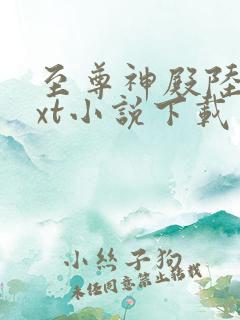 至尊神殿陸
xt小說下載
小丝子狗
未经同意禁止转载